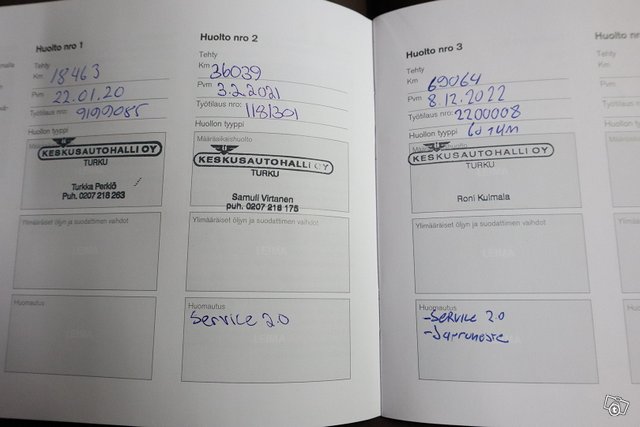 Huolto nro 1
Tehty
Km 18463
Pvm 22.01.20
Työtilaus nro: 9199085
Huollon tyyppi
Määräaikaishuolto
KESKUSAUTOHALLI OY
TURKU
Turkka Perkiö
Puh. 0207 218 263
Ylimääräiset öljyn ja suodattimen vaihdot
Huomautus
Huolto nro 2
Tehty
Km 36039
Pvm 3.2.2021
Työtilaus nro: 1181301
Huollon tyyppi
Määräaikaishuolto
KESKUSAUTOHALLI OY
TURKU
Samuli Virtanen
puh. 0207 218 175
Ylimääräiset öljyn ja suodattimen vaihdot
LEIMA
Huomautus
Service 2.0
LEIMA
Huolto nro 3
Tehty
Km 69064
Pvm 8.12.2022
Työtilaus nro: 2200008
Huollon tyyppi
KESKUSAUTOHALLI OY
TURKU
Roni Kulmala
Ylimääräiset öljyn ja suodattimen vaihdot
LEIMA
Huomautus
-Service 2.0
-Jarruneste
LEIMA
Huolto nro
Tehty
Km
Pvm